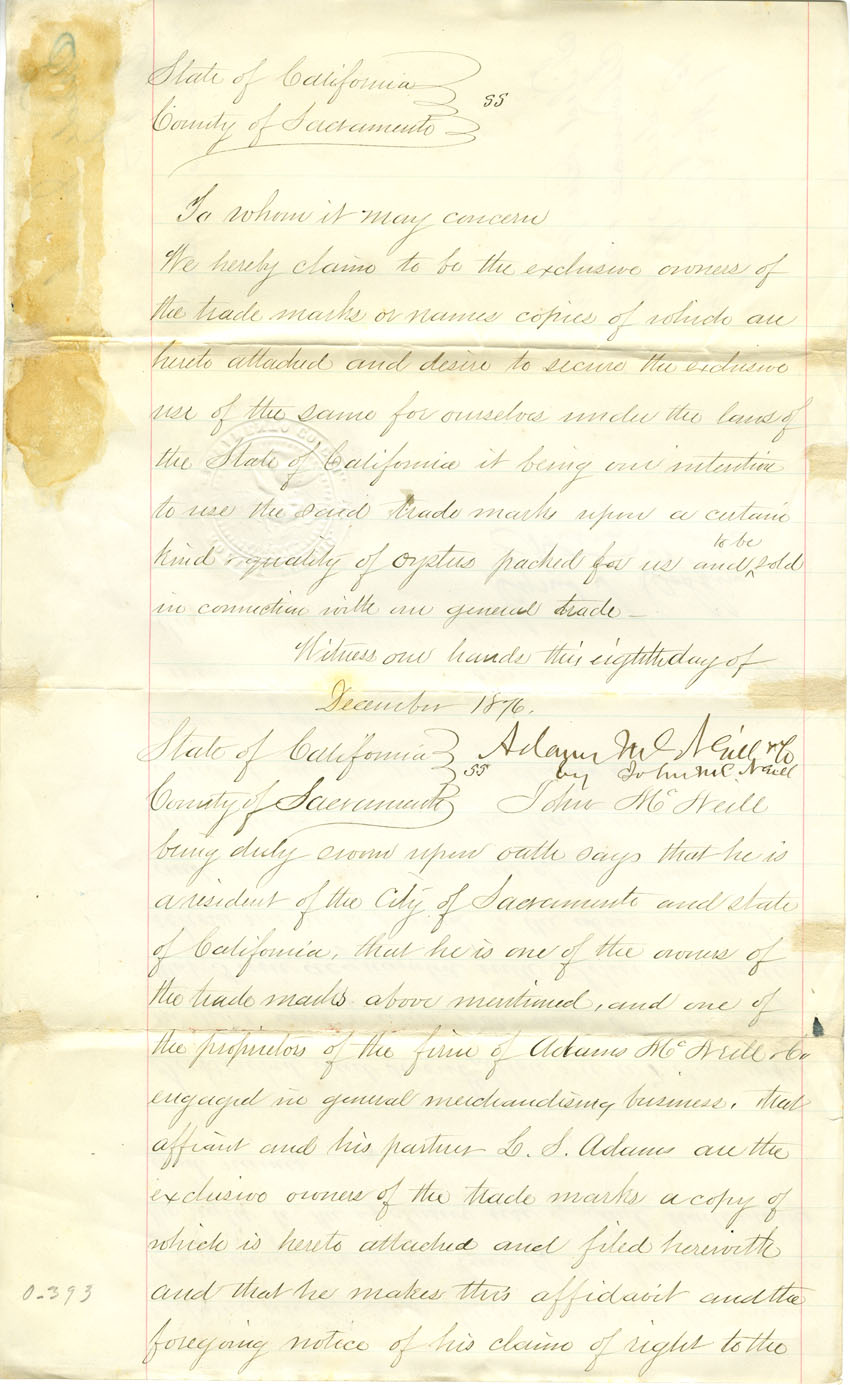 State of California
County of Sacramento ss
To whom it may concern
We hereby claim to be the exclusive owners of
the trade marks or names copies of which are
hereto attached and desire to secure the exclusive
use of the same for ourselves under the laws of
the State of California it being our intention
to use the said trade marks upon a certain
kind & quality of oysters packed for us and to be sold
in connection with our general trade —
Witness our hands this eighth day of
December 1876.
Adams McNeill & Co
by John McNeill
State of California
County of Sacramento ss John McNeill
being duly sworn upon oath says that he is
a resident of the City of Sacramento and state
of California, that he is one of the owners of
the trade marks above mentioned, and one of
the proprietors of the firm of Adams McNeill & Co
engaged in general merchandising business. that
affiant and his partner L. S. Adams are the
exclusive owners of the trade marks a copy of
which is hereto attached and filed herewith
and that he makes this affidavit and the
foregoing notice of his claim of right to the
0-393